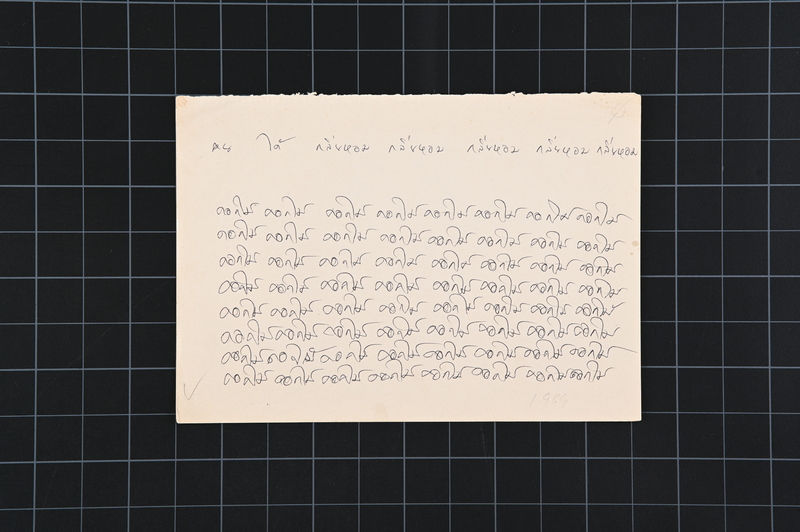 คน ได้ กลิ่นหอม กลิ่นหอม กลิ่นหอม กลิ่นหอม กลิ่นหอม
ดอกไม้ ดอกไม้ ดอกไม้ ดอกไม้ ดอกไม้ ดอกไม้ ดอกไม้ ดอกไม้
ดอกไม้ ดอกไม้ ดอกไม้ ดอกไม้ ดอกไม้ ดอกไม้ ดอกไม้ ดอกไม้
ดอกไม้ ดอกไม้ ดอกไม้ ดอกไม้ ดอกไม้ ดอกไม้ ดอกไม้ ดอกไม้
ดอกไม้ ดอกไม้ ดอกไม้ ดอกไม้ ดอกไม้ ดอกไม้ ดอกไม้ ดอกไม้
ดอกไม้ ดอกไม้ ดอกไม้ ดอกไม้ ดอกไม้ ดอกไม้ ดอกไม้ ดอกไม้
ดอกไม้ ดอกไม้ ดอกไม้ ดอกไม้ ดอกไม้ ดอกไม้ ดอกไม้ ดอกไม้
ดอกไม้ ดอกไม้ ดอกไม้ ดอกไม้ ดอกไม้ ดอกไม้ ดอกไม้ ดอกไม้
ดอกไม้ ดอกไม้ ดอกไม้ ดอกไม้ ดอกไม้ ดอกไม้ ดอกไม้ ดอกไม้